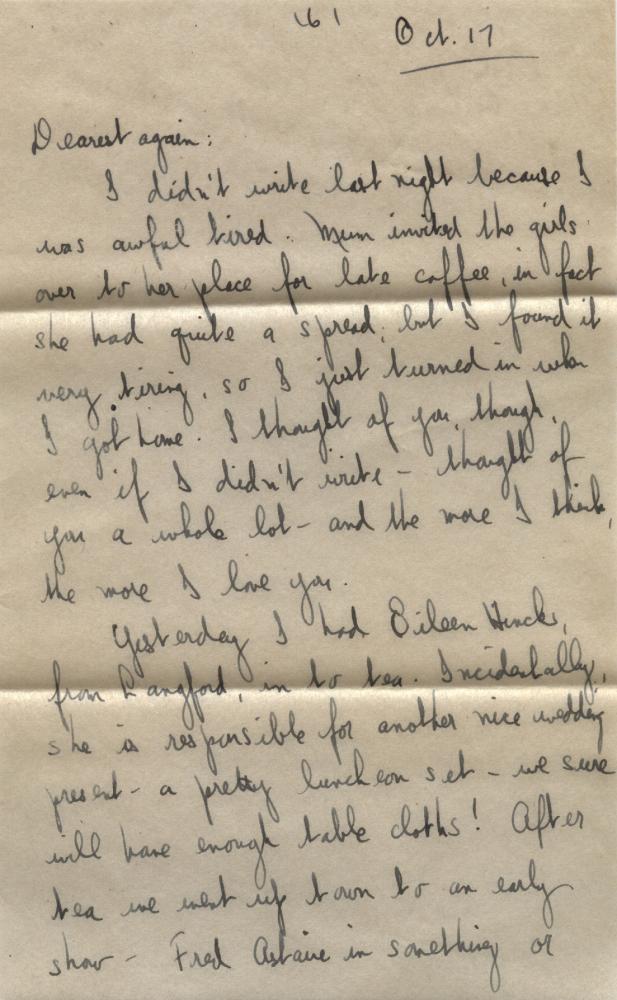 161
Oct. 17
Dearest again:
I didn't write last night because I
was awful tired. Mum invited the girls
over to her place for late coffee, in fact
she had quite a spread, but I found it
very tiring, so I just turned in when
I got home. I thought of you, though,
even if I didn't write - thought of
you a whole lot - and the more I think,
the more I love you.
Yesterday I had Eileen Hincks,
from Langford, in to tea. Incidentally,
she is responsible for another nice wedding
present - a pretty luncheon set - we sure
will have enough table cloths! After
tea we went up town to an early
show - Fred Astaire in something or